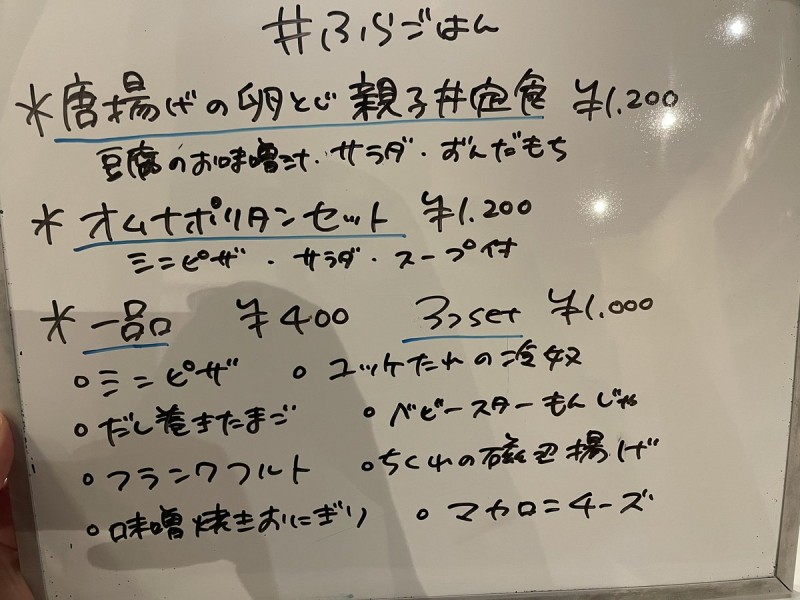 #ふらごはん
*唐揚げの卵とじ親子丼定食 ¥1.200
豆腐のお味噌汁・サラダ・ずんだもち
*オムナポリタンセット ¥1.200
ミニピザ・サラダ・スープ付
*一品 ¥400 3つset ¥1.000
○ミニピザ ○ユッケたれの冷奴
○だし巻きたまご ○ベビースターもんじゃ
○フランクフルト ○ちくわの磯辺揚げ
○味噌焼きおにぎり ○マカロニチーズ